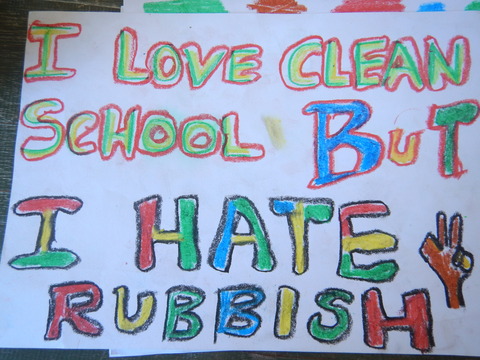 I LOVE CLEAN
SCHOOL BUT
I HATE
RUBBISH